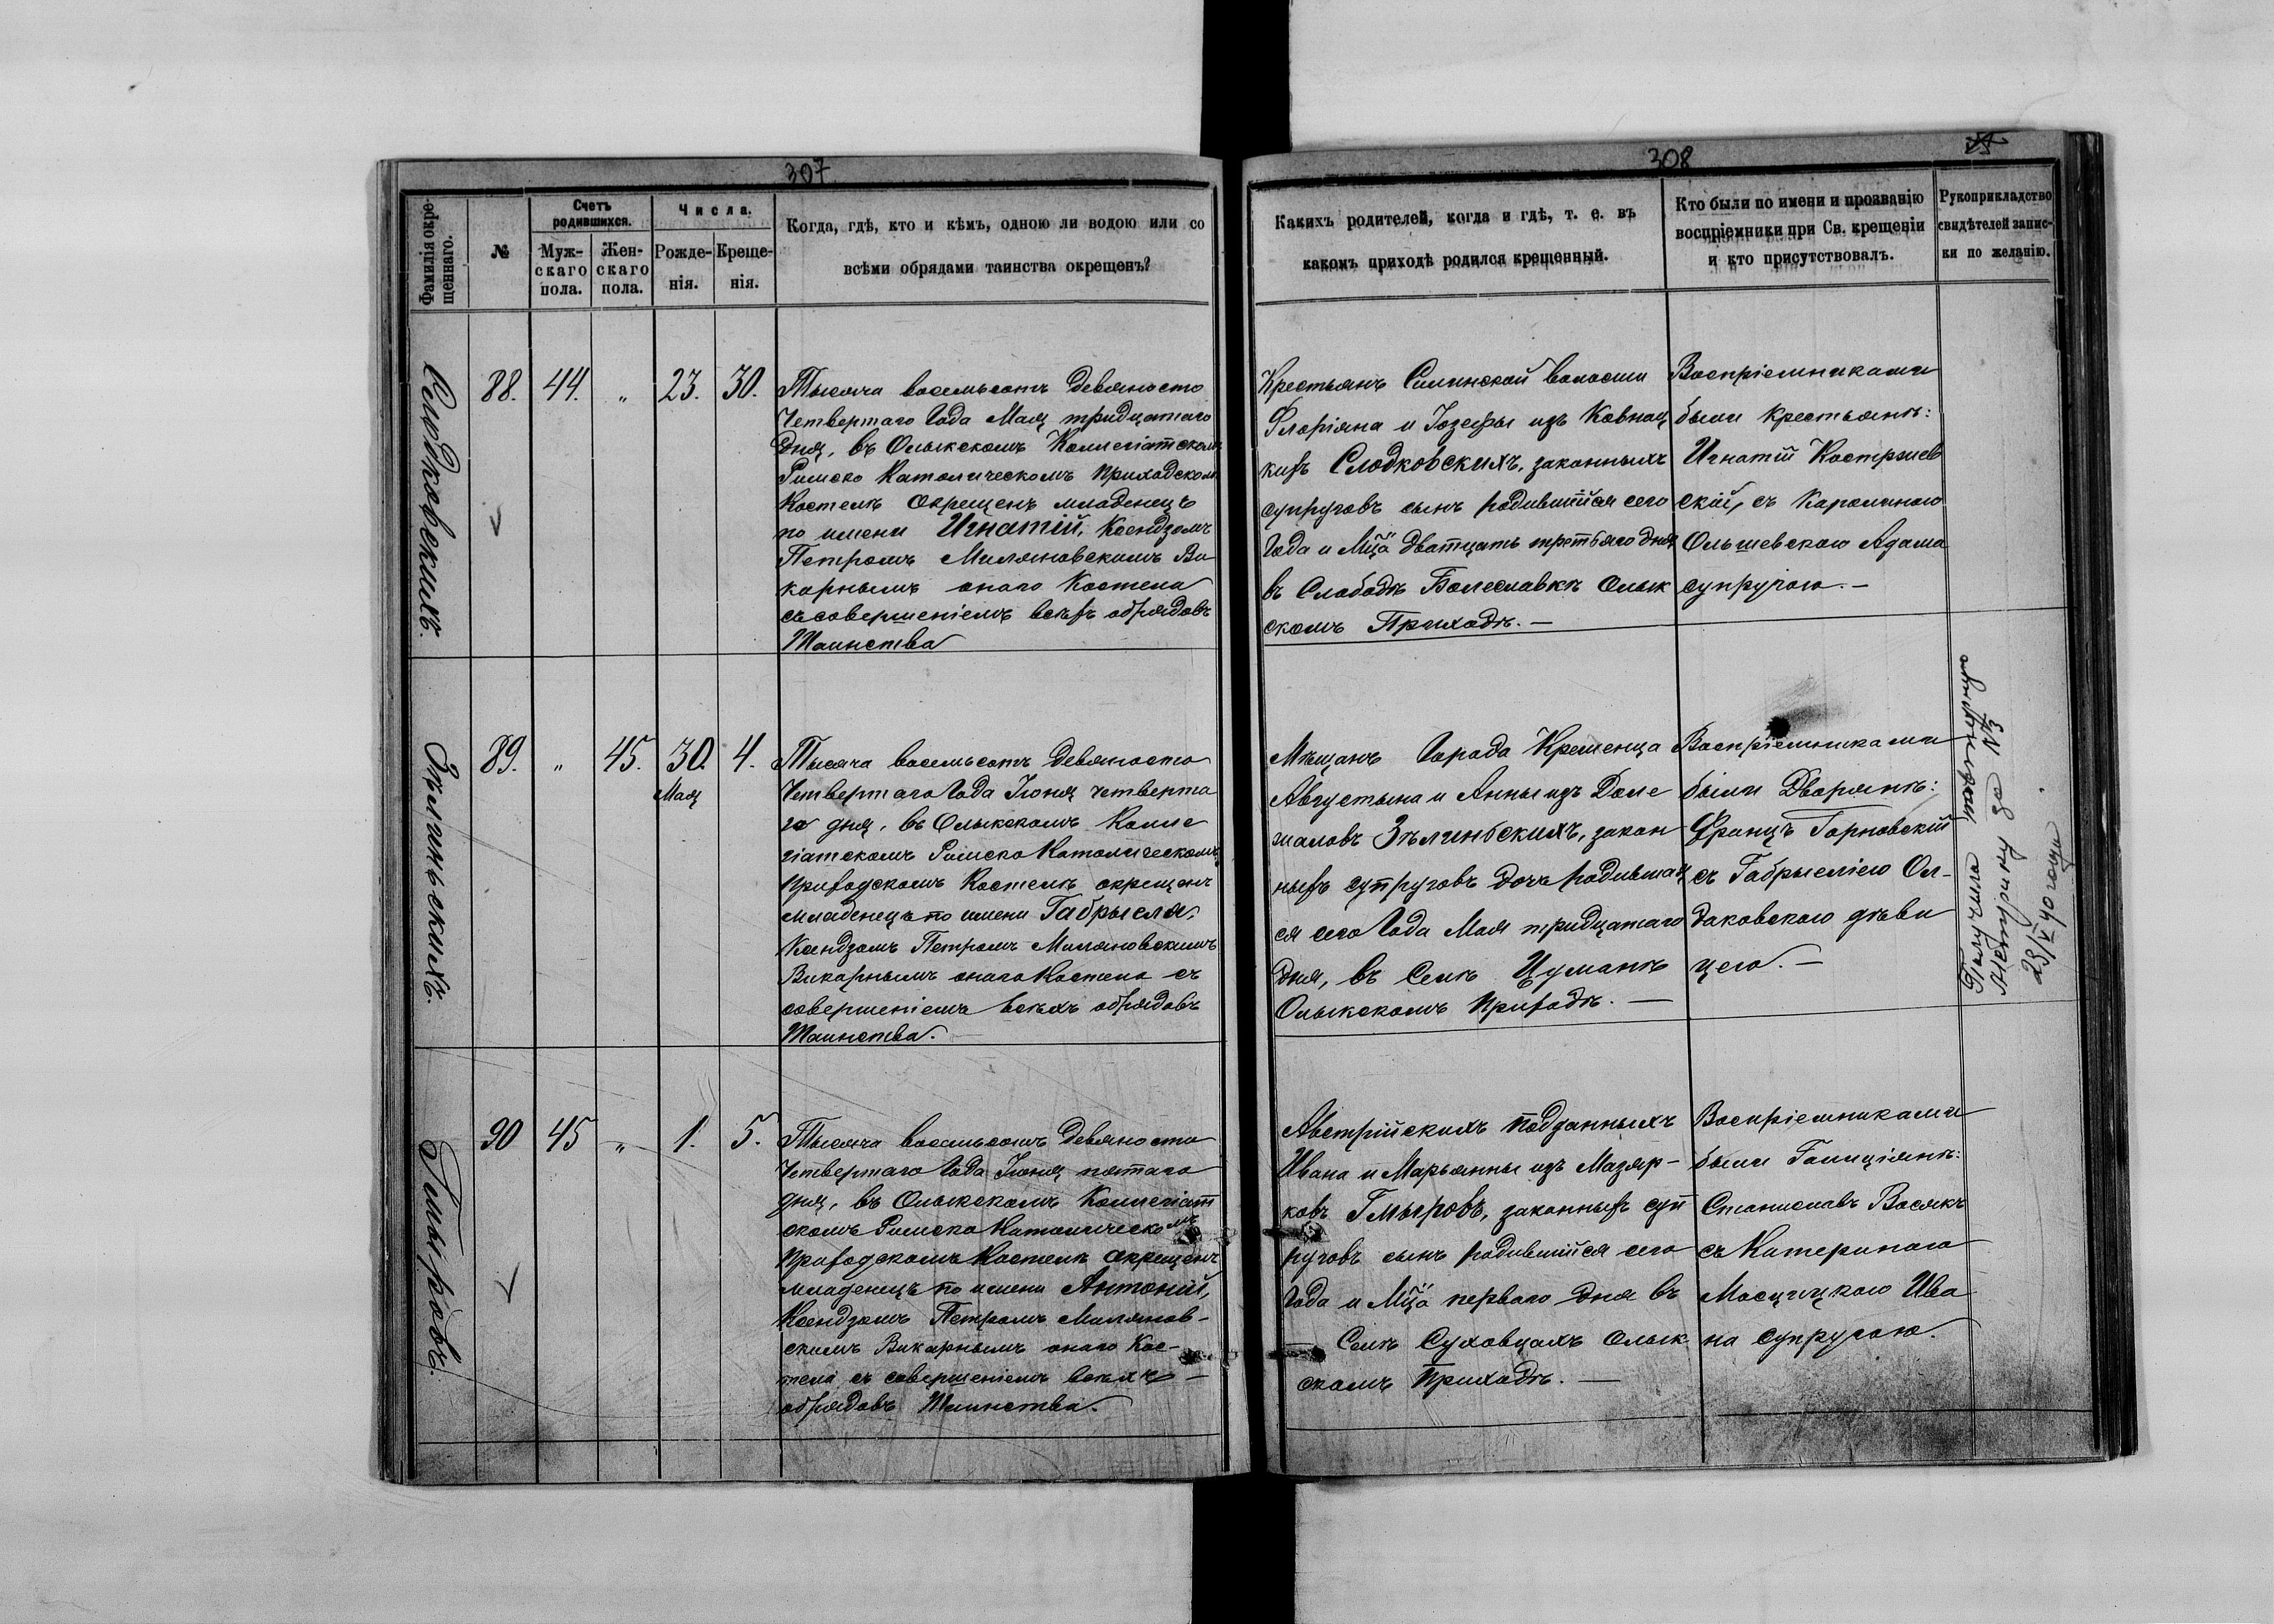 307
Фамилія окре-
щеннаго.
№
Счетъ
родившихся.
Муж-
скаго
пола.
Жен-
скаго
пола.
Числа.
Рожде-
нія.
Креще-
нія.
Когда, гдѣ, кто и кѣмъ, одною ли водою или со
всѣми обрядами таинства окрещенъ?
Слодковскихъ.
88. 44. „ 23. 30.
Тысяча восемьсотъ девяносто
Четвертаго Года Мая тридцатаго
дня, въ Олыкскомъ Коллегіатскомъ
Римско Католическомъ Приходском
Костелѣ Окрещенъ младенецъ
по имени Игнатій, Ксендзомъ
Петромъ Миляновскимъ Ви-
карнымъ онаго Костела
съ совершеніемъ всѣхъ обрядовъ
Таинства
Зѣлиньскихъ.
89. „ 45. 30. 4.
Мая
Тысяча восемьсотъ девяносто
Четвертаго Года Іюня четверта
го дня, въ Олыкскомъ Колле
гіатскомъ Римско Католическомъ
Приходскомъ Костелѣ окрещенъ
младенецъ по имени Габрыеля,
Ксендзомъ Петромъ Миляновскимъ
Викарнымъ онаго Костела съ
совершеніемъ всѣхъ обрядовъ
Таинства.
Гмыровъ.
90 45 „ 1. 5.
Тысяча восемьсотъ девяносто
Четвертаго Года Іюня пятаго
дня, въ Олыкскомъ Коллегіат
скомъ Римско Католическомъ
Приходскомъ Костелѣ окрещенъ
младенецъ по имени Антоній,
Ксендзомъ Петромъ Милянов-
скимъ Викарнымъ онаго Кос-
тела съ совершеніемъ всѣхъ —
обрядовъ Таинства.
308
Какихъ родителей, когда и гдѣ, т. е. въ
какомъ приходѣ родился крещенный.
Кто были по имени и прозванію
воспріемники при Св. крещеніи
и кто присутствовалъ.
Рукоприкладство
свидѣтелей запис-
ки по желанію.
Крестьянъ Силинской волости
Флоріяна и Іозефы изъ Ковнац
кихъ Слодковскихъ, законныхъ
супруговъ сынъ родившійся сего
Года и Мца двадцать третьяго дня
въ Слободѣ Болеславкѣ Олык
скомъ Приходѣ. —
Воспріемниками
были Крестьянѣ:
Игнатій Костржев
скій, съ Каролиною
Ольшевскою Адама
супругою. —
Мѣщанъ Города Кременца
Августына и Анны изъ Доле
маловъ Зѣлиньскихъ, закон
ныхъ супруговъ дочь родившая
ся сего Года Мая тридцатаго
дня, въ Селѣ Цуманѣ
Олыкскомъ Приходѣ. —
Воспріемниками
были Дворянѣ:
Францъ Горновскій
съ Габрыеліею Ол-
даковскою дѣви
цею. —
Получила
метрику за №3
23/X 40 года
Австрійскихъ подданныхъ
Ивана и Марьянны изъ Мазяр-
ковъ Гмыровъ, законныхъ суп
руговъ сынъ родившійся сего
Года и Мца перваго дня въ
— Селѣ Суховцахъ Олык
скомъ Приходѣ. —
Воспріемниками
были Галиціянѣ:
Станиславъ Восякъ
съ Катериною
Мосціцкою Ива
на супругою.